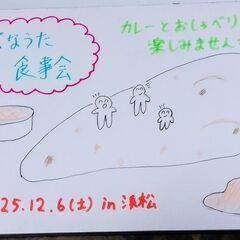 なうた
食事会
カレーとおしゃべり
楽しみません
25.12.6(土) in 浜松